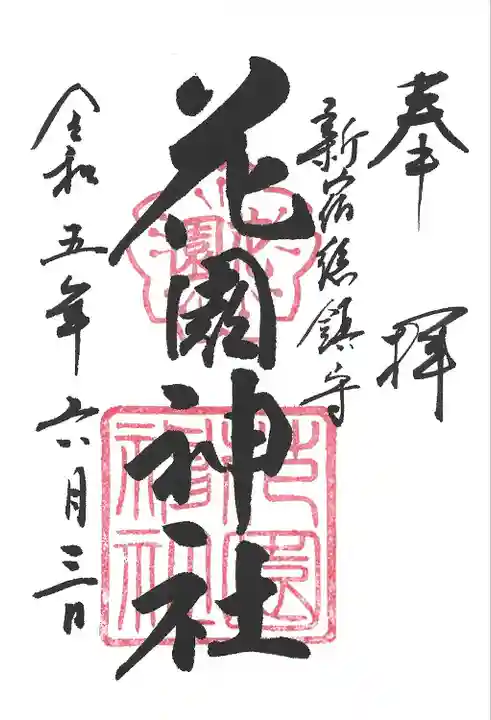 奉拝
新宿総鎮守
花園神社
花園
花園神社
令和五年六月三日